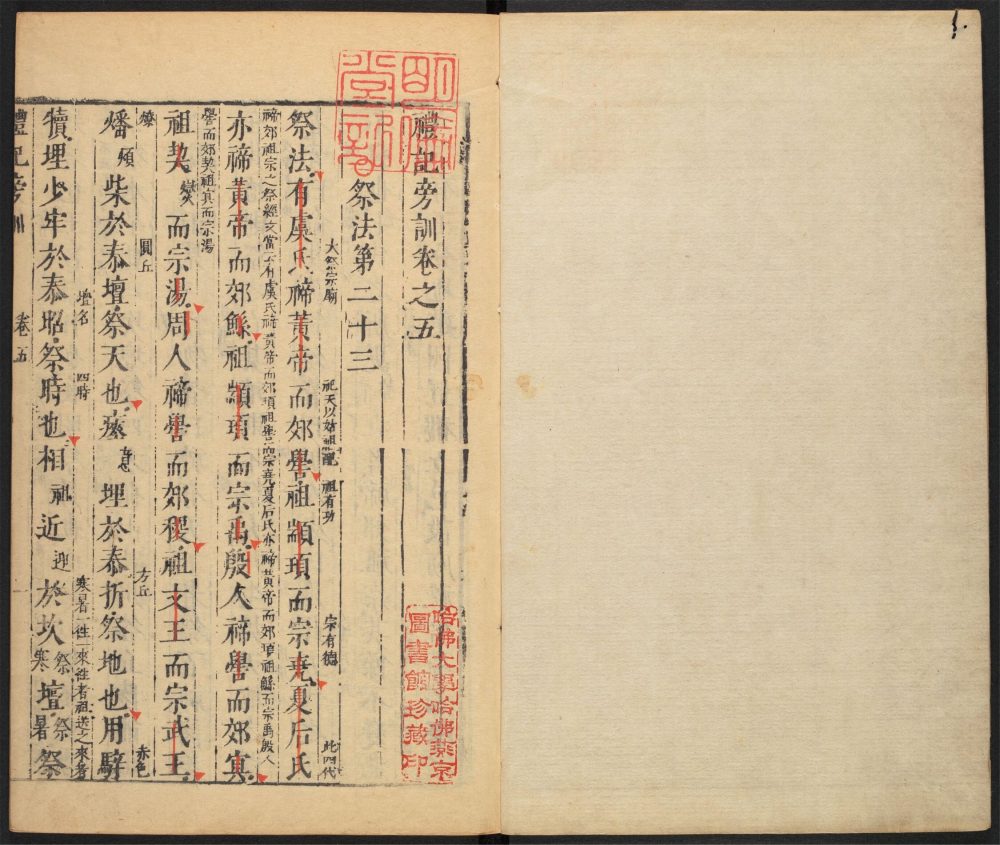 禮記旁訓卷之五
祭法第二十三
大祭宗廟 祀天以始祖配 祖有功 宗有德 此四代
祭法有虞氏禘黃帝而郊嚳祖顓頊而宗堯夏后氏
禘郊祖宗之祭經文當云有虞氏禘黃帝而郊頊祖嚳而宗堯夏后氏亦禘黃帝而郊頊祖鯀而宗禹殷人
亦禘黃帝而郊鯀祖顓頊而宗禹殷人禘嚳而郊冥
嚳而郊契祖冥而宗湯
祖契 而宗湯周人禘嚳而郊稷祖文王而宗武王
燎 圓丘 方丘 赤色
燔煩柴於泰壇祭天也瘞意埋於泰折祭地也用騂
壇名 四時 寒暑一往一來往者祖送之來者
犢埋少牢於泰昭祭時也相祖近迎於坎祭寒壇祭暑祭
禮記旁訓 卷五
哈佛大學哈佛燕京圖書館珍藏印